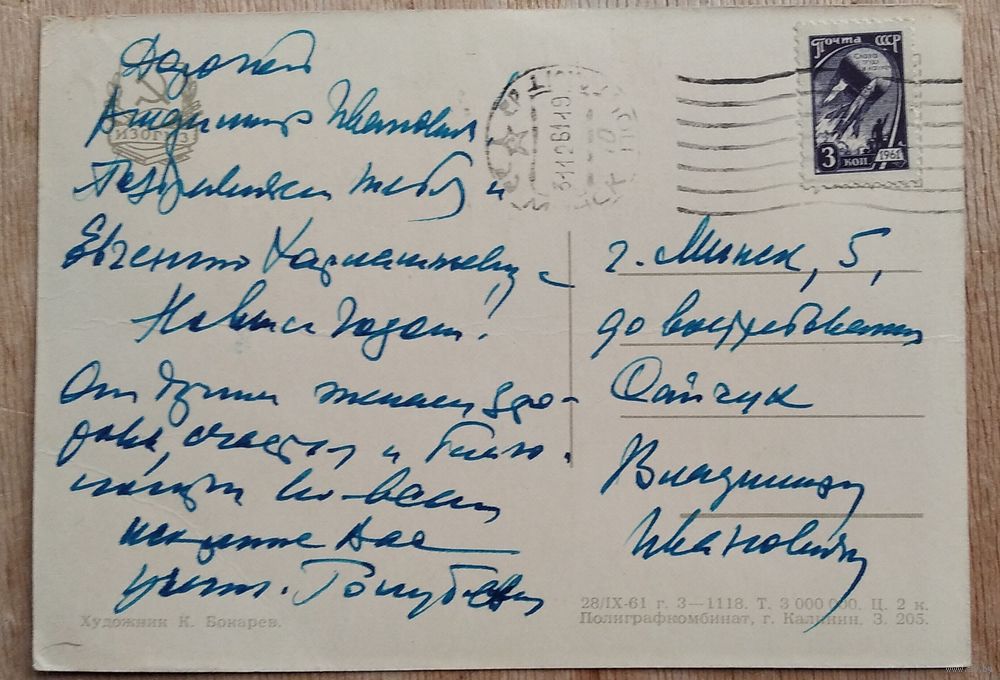 Дорогой
Владимир Иванович!
Поздравляем тебя и
Евгению Харлампиевну с
Новым годом!
От души желаем здо-
ровья, счастья и благо-
получия во всем
искренне Вас
уважающ. Голубевы
ИЗОГИЗ
Художник К. Бокарев.
Почта СССР
3 коп
1961
г. Минск, 5,
до востребования
Сайчук
Владимиру
Ивановичу
28/IX-61 г. З—1118. Т. 3 000 000. Ц. 2 к.
Полиграфкомбинат, г. Калинин. З. 205.